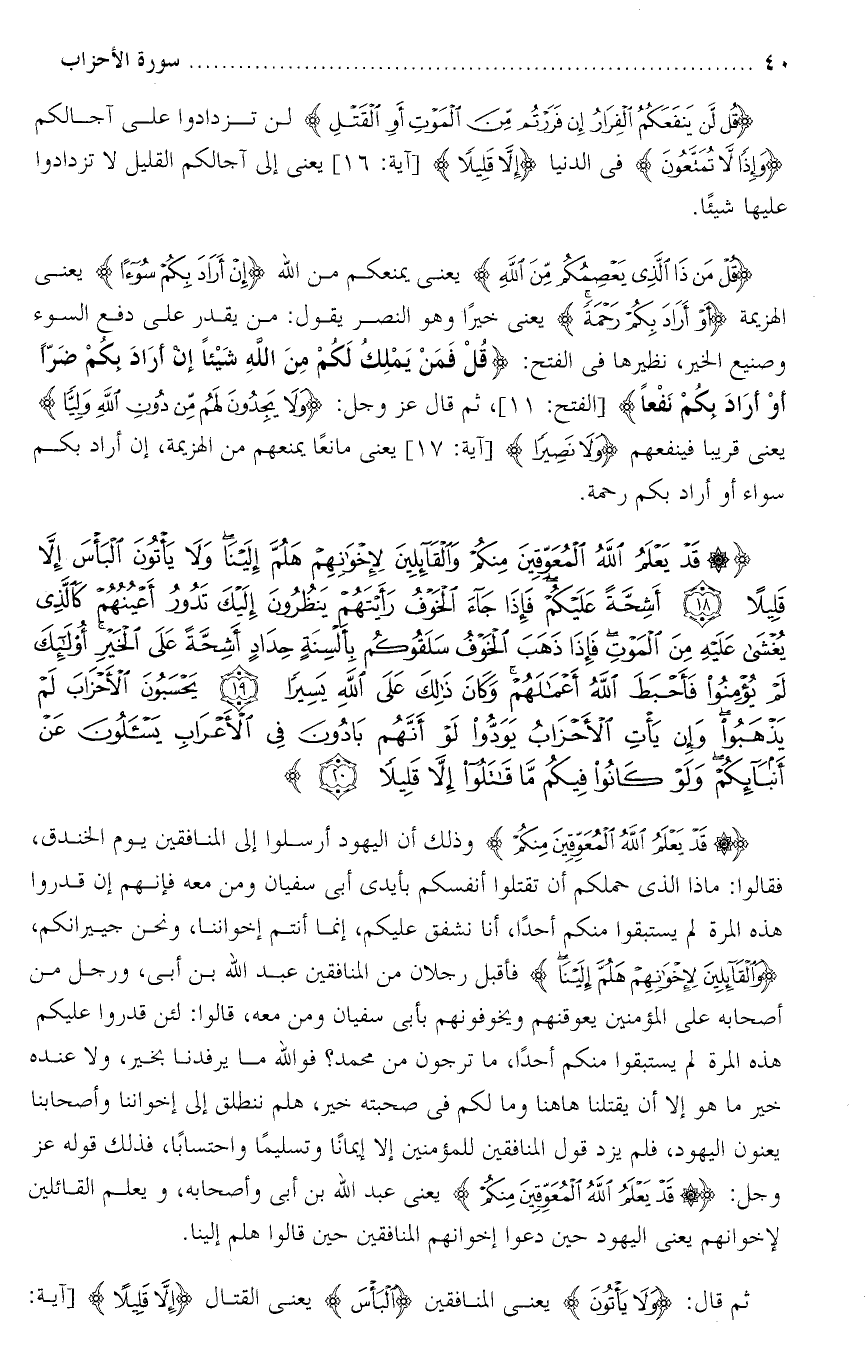 ٤٠ ........................................................ سورة الأحزاب
﴿قُل لَّن يَنفَعَكُمُ ٱلْفِرَارُ إِن فَرَرْتُم مِّنَ ٱلْمَوْتِ أَوِ ٱلْقَتْلِ﴾ لـن تـــزدادوا علـــى آجـالكم
﴿وَإِذًا لَّا تُمَتَّعُونَ﴾ فى الدنيا ﴿إِلَّا قَلِيلًا﴾ [آية: ١٦] يعنى إلى آجالكم القليل لا تزدادوا
عليها شيئًا.
﴿قُلْ مَن ذَا ٱلَّذِى يَعْصِمُكُم مِّنَ ٱللَّهِ﴾ يعنـى يمنعكـم مـن الله ﴿إِنْ أَرَادَ بِكُمْ سُوٓءًا﴾ يعنـى
الهزيمة ﴿أَوْ أَرَادَ بِكُمْ رَحْمَةً ۚ﴾ يعنى خيرًا وهو النصـر يقول: مـن يقـدر علـى دفـع السـوء
وصنيع الخير، نظيرها فى الفتح: ﴿قُلْ فَمَنْ يَمْلِكُ لَكُمْ مِنَ اللَّهِ شَيْئاً إِنْ أَرَادَ بِكُمْ ضَرّاً
أوْ أرَادَ بِكُمْ نَفْعاً﴾ [الفتح: ١١]، ثم قال عز وجل: ﴿وَلَا يَجِدُونَ لَهُم مِّن دُونِ ٱللَّهِ وَلِيًّا﴾
يعنى قريبا فينفعهم ﴿وَلَا نَصِيرًا﴾ [آية: ١٧] يعنى مانعًا يمنعهم من الهزيمة، إن أراد بكـم
سواء أو أراد بكم رحمة.
﴿۞ قَدْ يَعْلَمُ ٱللَّهُ ٱلْمُعَوِّقِينَ مِنكُمْ وَٱلْقَآئِلِينَ لِإِخْوَٰنِهِمْ هَلُمَّ إِلَيْنَا ۖ وَلَا يَأْتُونَ ٱلْبَأْسَ إِلَّا
قَلِيلًا ١٨ أَشِحَّةً عَلَيْكُمْ ۖ فَإِذَا جَآءَ ٱلْخَوْفُ رَأَيْتَهُمْ يَنظُرُونَ إِلَيْكَ تَدُورُ أَعْيُنُهُمْ كَٱلَّذِى
يُغْشَىٰ عَلَيْهِ مِنَ ٱلْمَوْتِ ۖ فَإِذَا ذَهَبَ ٱلْخَوْفُ سَلَقُوكُم بِأَلْسِنَةٍ حِدَادٍ أَشِحَّةً عَلَى ٱلْخَيْرِ ۚ أُو۟لَٰٓئِكَ
لَمْ يُؤْمِنُوا۟ فَأَحْبَطَ ٱللَّهُ أَعْمَٰلَهُمْ ۚ وَكَانَ ذَٰلِكَ عَلَى ٱللَّهِ يَسِيرًا ١٩ يَحْسَبُونَ ٱلْأَحْزَابَ لَمْ
يَذْهَبُوا۟ ۖ وَإِن يَأْتِ ٱلْأَحْزَابُ يَوَدُّوا۟ لَوْ أَنَّهُم بَادُونَ فِى ٱلْأَعْرَابِ يَسْـَٔلُونَ عَنْ
أَنۢبَآئِكُمْ ۖ وَلَوْ كَانُوا۟ فِيكُم مَّا قَٰتَلُوٓا۟ إِلَّا قَلِيلًا ٢٠ ﴾
﴿۞ قَدْ يَعْلَمُ ٱللَّهُ ٱلْمُعَوِّقِينَ مِنكُمْ﴾ وذلك أن اليهود أرسلـوا إلى المنافقين يـوم الخندق،
فقالوا: ماذا الذى حملكم أن تقتلوا أنفسكم بأيدى أبى سفيان ومن معه فإنـهم إن قـدروا
هذه المرة لم يستبقوا منكم أحدًا، أنا نشفق عليكم، إنمـا أنتـم إخواننـا، ونحـن جيـرانكم،
﴿وَٱلْقَآئِلِينَ لِإِخْوَٰنِهِمْ هَلُمَّ إِلَيْنَا ۖ﴾ فأقبل رجلان من المنافقين عبـد الله بـن أبـى، ورجـل مـن
أصحابه على المؤمنين يعوقنهم ويخوفونهم بأبى سفيان ومن معه، قالوا: لئن قدروا عليكم
هذه المرة لم يستبقوا منكم أحدًا، ما ترجون من محمد؟ فوالله مـا يرفدنـا بخـير، ولا عنـده
خير ما هو إلا أن يقتلنا هاهنا وما لكم فى صحبته خير، هلم ننطلق إلى إخواننا وأصحابنا
يعنون اليهود، فلم يزد قول المنافقين للمؤمنين إلا إيمانًا وتسليمًا واحتسابًا، فذلك قوله عز
وجل: ﴿۞ قَدْ يَعْلَمُ ٱللَّهُ ٱلْمُعَوِّقِينَ مِنكُمْ﴾ يعنى عبد الله بن أبى وأصحابه، و يعلـم القـائلين
لإخوانهم يعنى اليهود حين دعوا إخوانهم المنافقين حين قالوا هلم إلينا.
ثم قال: ﴿وَلَا يَأْتُونَ﴾ يعنـى المنـافقين ﴿ٱلْبَأْسَ﴾ يعنى القتـال ﴿إِلَّا قَلِيلًا﴾ [آيـة: